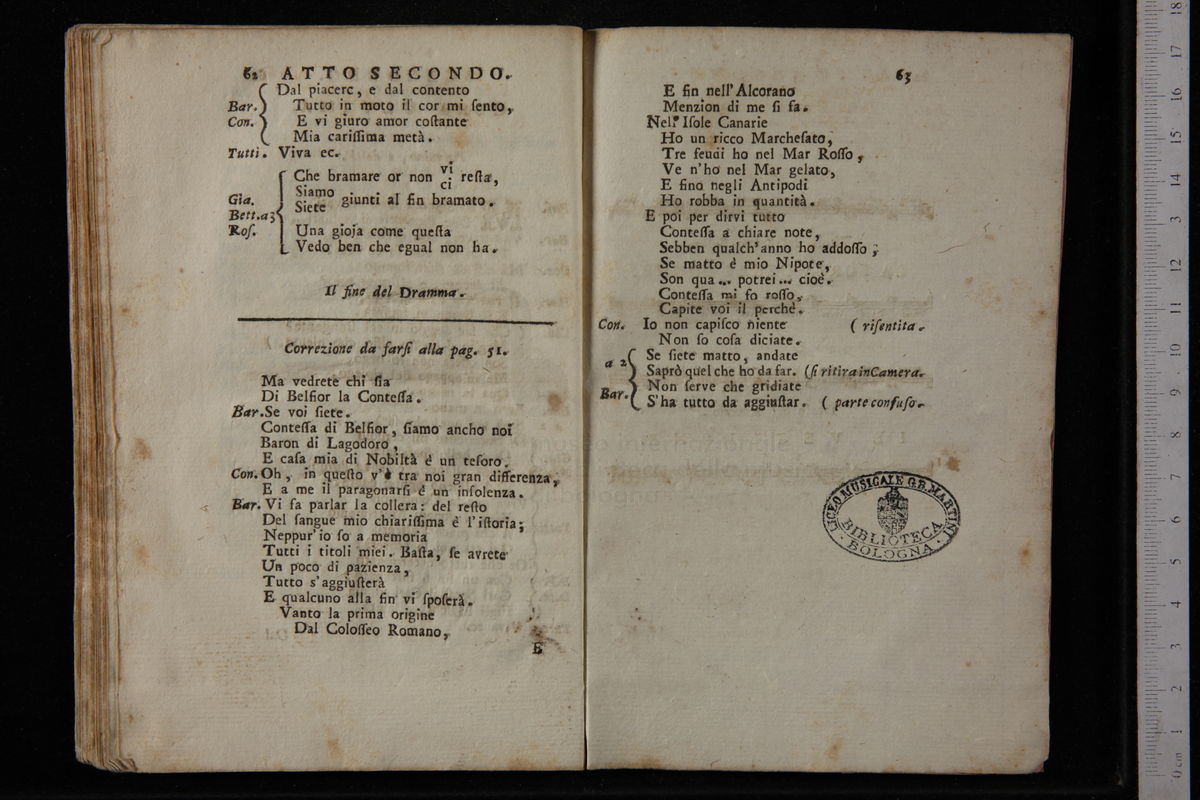 62 ATTO SECONDO.
Dal piacere, e dal contento
Bar. Tutto in moto il cor mi ſento,
Con. E vi giuro amor coſtante
Mia cariſſima metà.
Tutti. Viva ec.
Che bramare or non vi/ci reſta,
Gia. Siamo/Siete giunti al fin bramato.
Bett. a 3
Roſ. Una gioja come queſta
Vedo ben che egual non ha.
Il fine del Dramma.
Correzione da farſi alla pag. 51.
Ma vedrete chi ſia
Di Belfior la Conteſſa.
Bar. Se voi ſiete.
Conteſſa di Belfior, ſiamo ancho noi
Baron di Lagodoro,
E caſa mia di Nobiltà é un teſoro.
Con. Oh, in queſto v'è tra noi gran differenza,
E a me il paragonarſi é un inſolenza.
Bar. Vi fa parlar la collera: del reſto
Del ſangue mio chiariſſima è l'iſtoria;
Neppur'io ſo a memoria
Tutti i titoli miei. Baſta, ſe avrete
Un poco di pazienza,
Tutto s'aggiuſterà
E qualcuno alla fin vi ſpoſerà.
Vanto la prima origine
Dal Coloſſeo Romano,
E
63
E fin nell'Alcorano
Menzion di me ſi fa.
Nell' Iſole Canarie
Ho un ricco Marcheſato,
Tre feudi ho nel Mar Roſſo,
Ve n'ho nel Mar gelato,
E fino negli Antipodi
Ho robba in quantità.
E poi per dirvi tutto
Conteſſa a chiare note,
Sebben qualch'anno ho addoſſo;
Se matto é mio Nipote,
Son qua... potrei... cioè.
Conteſſa mi fo roſſo,
Capite voi il perchè.
Con. Io non capiſco niente (riſentita.
Non ſo coſa diciate.
a 2 Se ſiete matto, andate
Saprò quel che ho da far. (ſi ritira in Camera.
Bar. Non ſerve che gridiate
S'ha tutto da aggiuſtar. (parte confuſo.
LICEO MUSICALE G.B. MARTINI
BIBLIOTECA
BOLOGNA
museo internazionale
bologna
0 cm 1 2 3 4 5 6 7 8 9 10 11 12 13 14 15 16 17 18